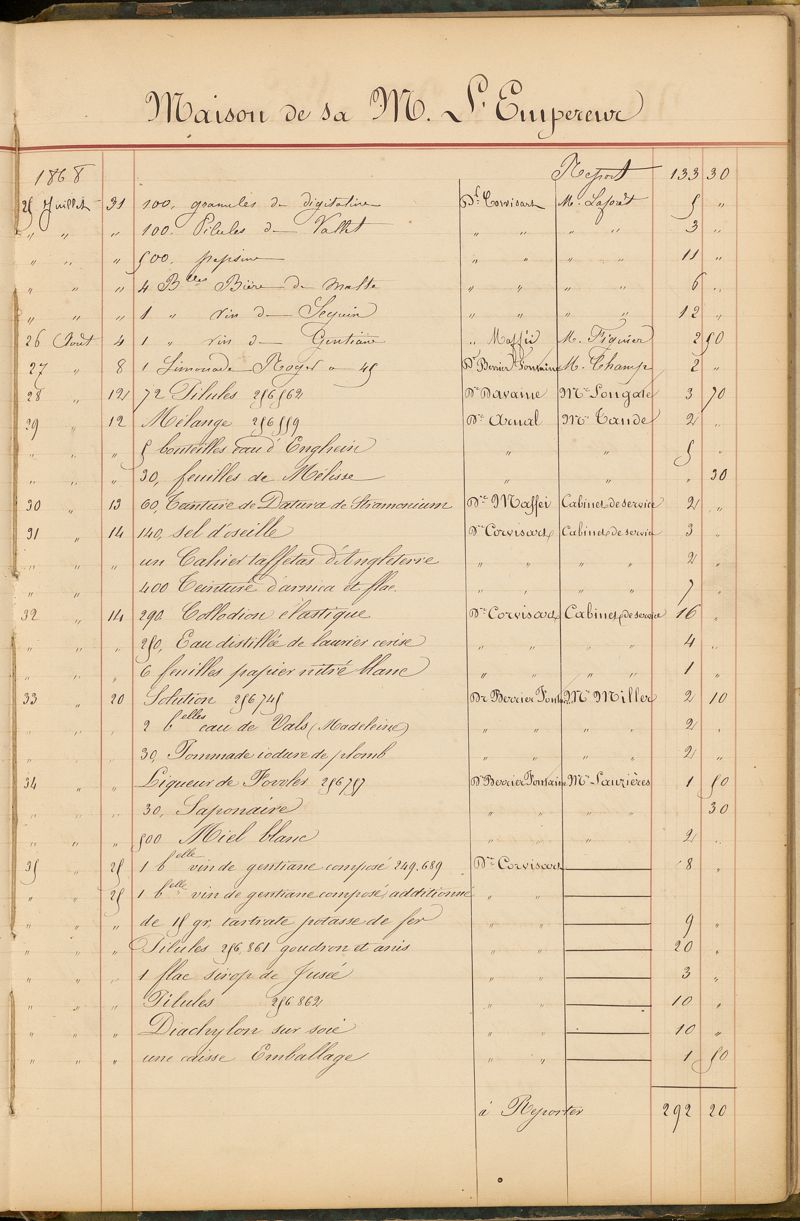 Maison de sa M. L'Empereur
1868 Report 133 30
25 Juillet 31 100, granules de digitaline Dr Corvisart M. Laforêt 5 "
" " " 100. Pilules de Vallet " " " " 3 "
" " " 500. pepsine " " " " 11 "
" " " 4 Blles Bière de Malte " " " " 6 "
" " " 1 " vin de Seguin " " " " 12 "
26 Aout 4 1 " vin de Gentiane " Mafféi M. Figuier 2 50
27 " 8 1 Limonade Roger " 45 Dr Berrier Fontaine M. Champ 2 "
28 " 12 72 Pilules 256562 Dr Davaine Mr 3 70
29 " 12 Mélange 256559 Dr Arnal Mr Tande 2 "
" " " 5 bouteilles eau d'Enghein " " 5 "
" " " 30, feuilles de Mélisse " " " 30
30 " 13 60, Teinture de Datura de Stramonium Dr Maffei Cabinet de service 2 "
31 " 14 140, sel d'oseille Dr Corvisart Cabinet de service 3 "
" " " un Cahier taffetas d'Angleterre " " " " 2 "
" " " 400 Teinture d'arnica et flac. " " " " 7 "
32 " 14 290. Collodion élastique Dr Corvisart Cabinet de service 16 "
" " " 250, Eau distillée de laurier cerise " " " " 4 "
" " " 6 feuilles papier nitré blanc " " " " 1 "
33 " 20 Solution 256745 Dr Berrier Fontaine Mr Miller 2 10
" " " 2 belles eau de Vals (Madeleine) " " " " 2 "
" " " 30, Pommade iodure de plomb " " " " 2 "
34 " " Liqueur de Fowler 256757 Dr Berrier Fontaine Mr Lauzières 1 50
" " " 30, Saponaire " " " 30
" " " 500 Miel blanc " " " 2 "
35 " 25 1 belle vin de gentiane composé 249.689 Dr Corvisart 8 "
" " 25 1 belle vin de gentiane composé, additionné " "
" " " de 15 gr. tartrate potasse de fer " " 9 "
" " " Pilules 256.861 goudron et anis " " 20 "
" " " 1 flac sirop de Jusée " " 3 "
" " " Pilules 256862 " " 10 "
" " " Diachylon sur soie " " 10 "
" " " une caisse Emballage " " 1 50
à Reporter 292 20